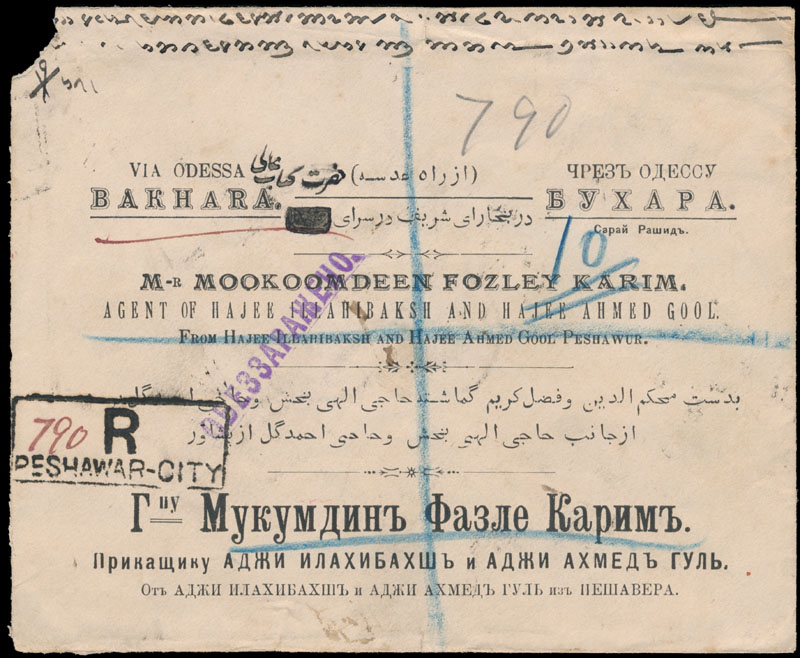 790
VIA ODESSA (از راه عدسه) ЧРЕЗЪ ОДЕССУ
BAKHARA. БУХАРА.
در بخارای شریف در سرای
Сарай Рашидъ.
10
M-R MOOKOOMDEEN FOZLEY KARIM.
AGENT OF HAJEE ILLAHIBAKSH AND HAJEE AHMED GOOL.
FROM HAJEE ILLAHIBAKSH AND HAJEE AHMED GOOL PESHAWUR.
ОБЕЗЗАРАЖЕНО.
بدست محکم الدین و فضل کریم گماشته حاجی الهی بخش و حاجی احمد گل
از جانب حاجی الهی بخش و حاجی احمد گل از پشاور
790 R
PESHAWAR-CITY
Гну Мукумдинъ Фазле Каримъ.
Прикащику АДЖИ ИЛАХИБАХШЪ и АДЖИ АХМЕДЪ ГУЛЬ.
Отъ АДЖИ ИЛАХИБАХШЪ и АДЖИ АХМЕДЪ ГУЛЬ изъ ПЕШАВЕРА.